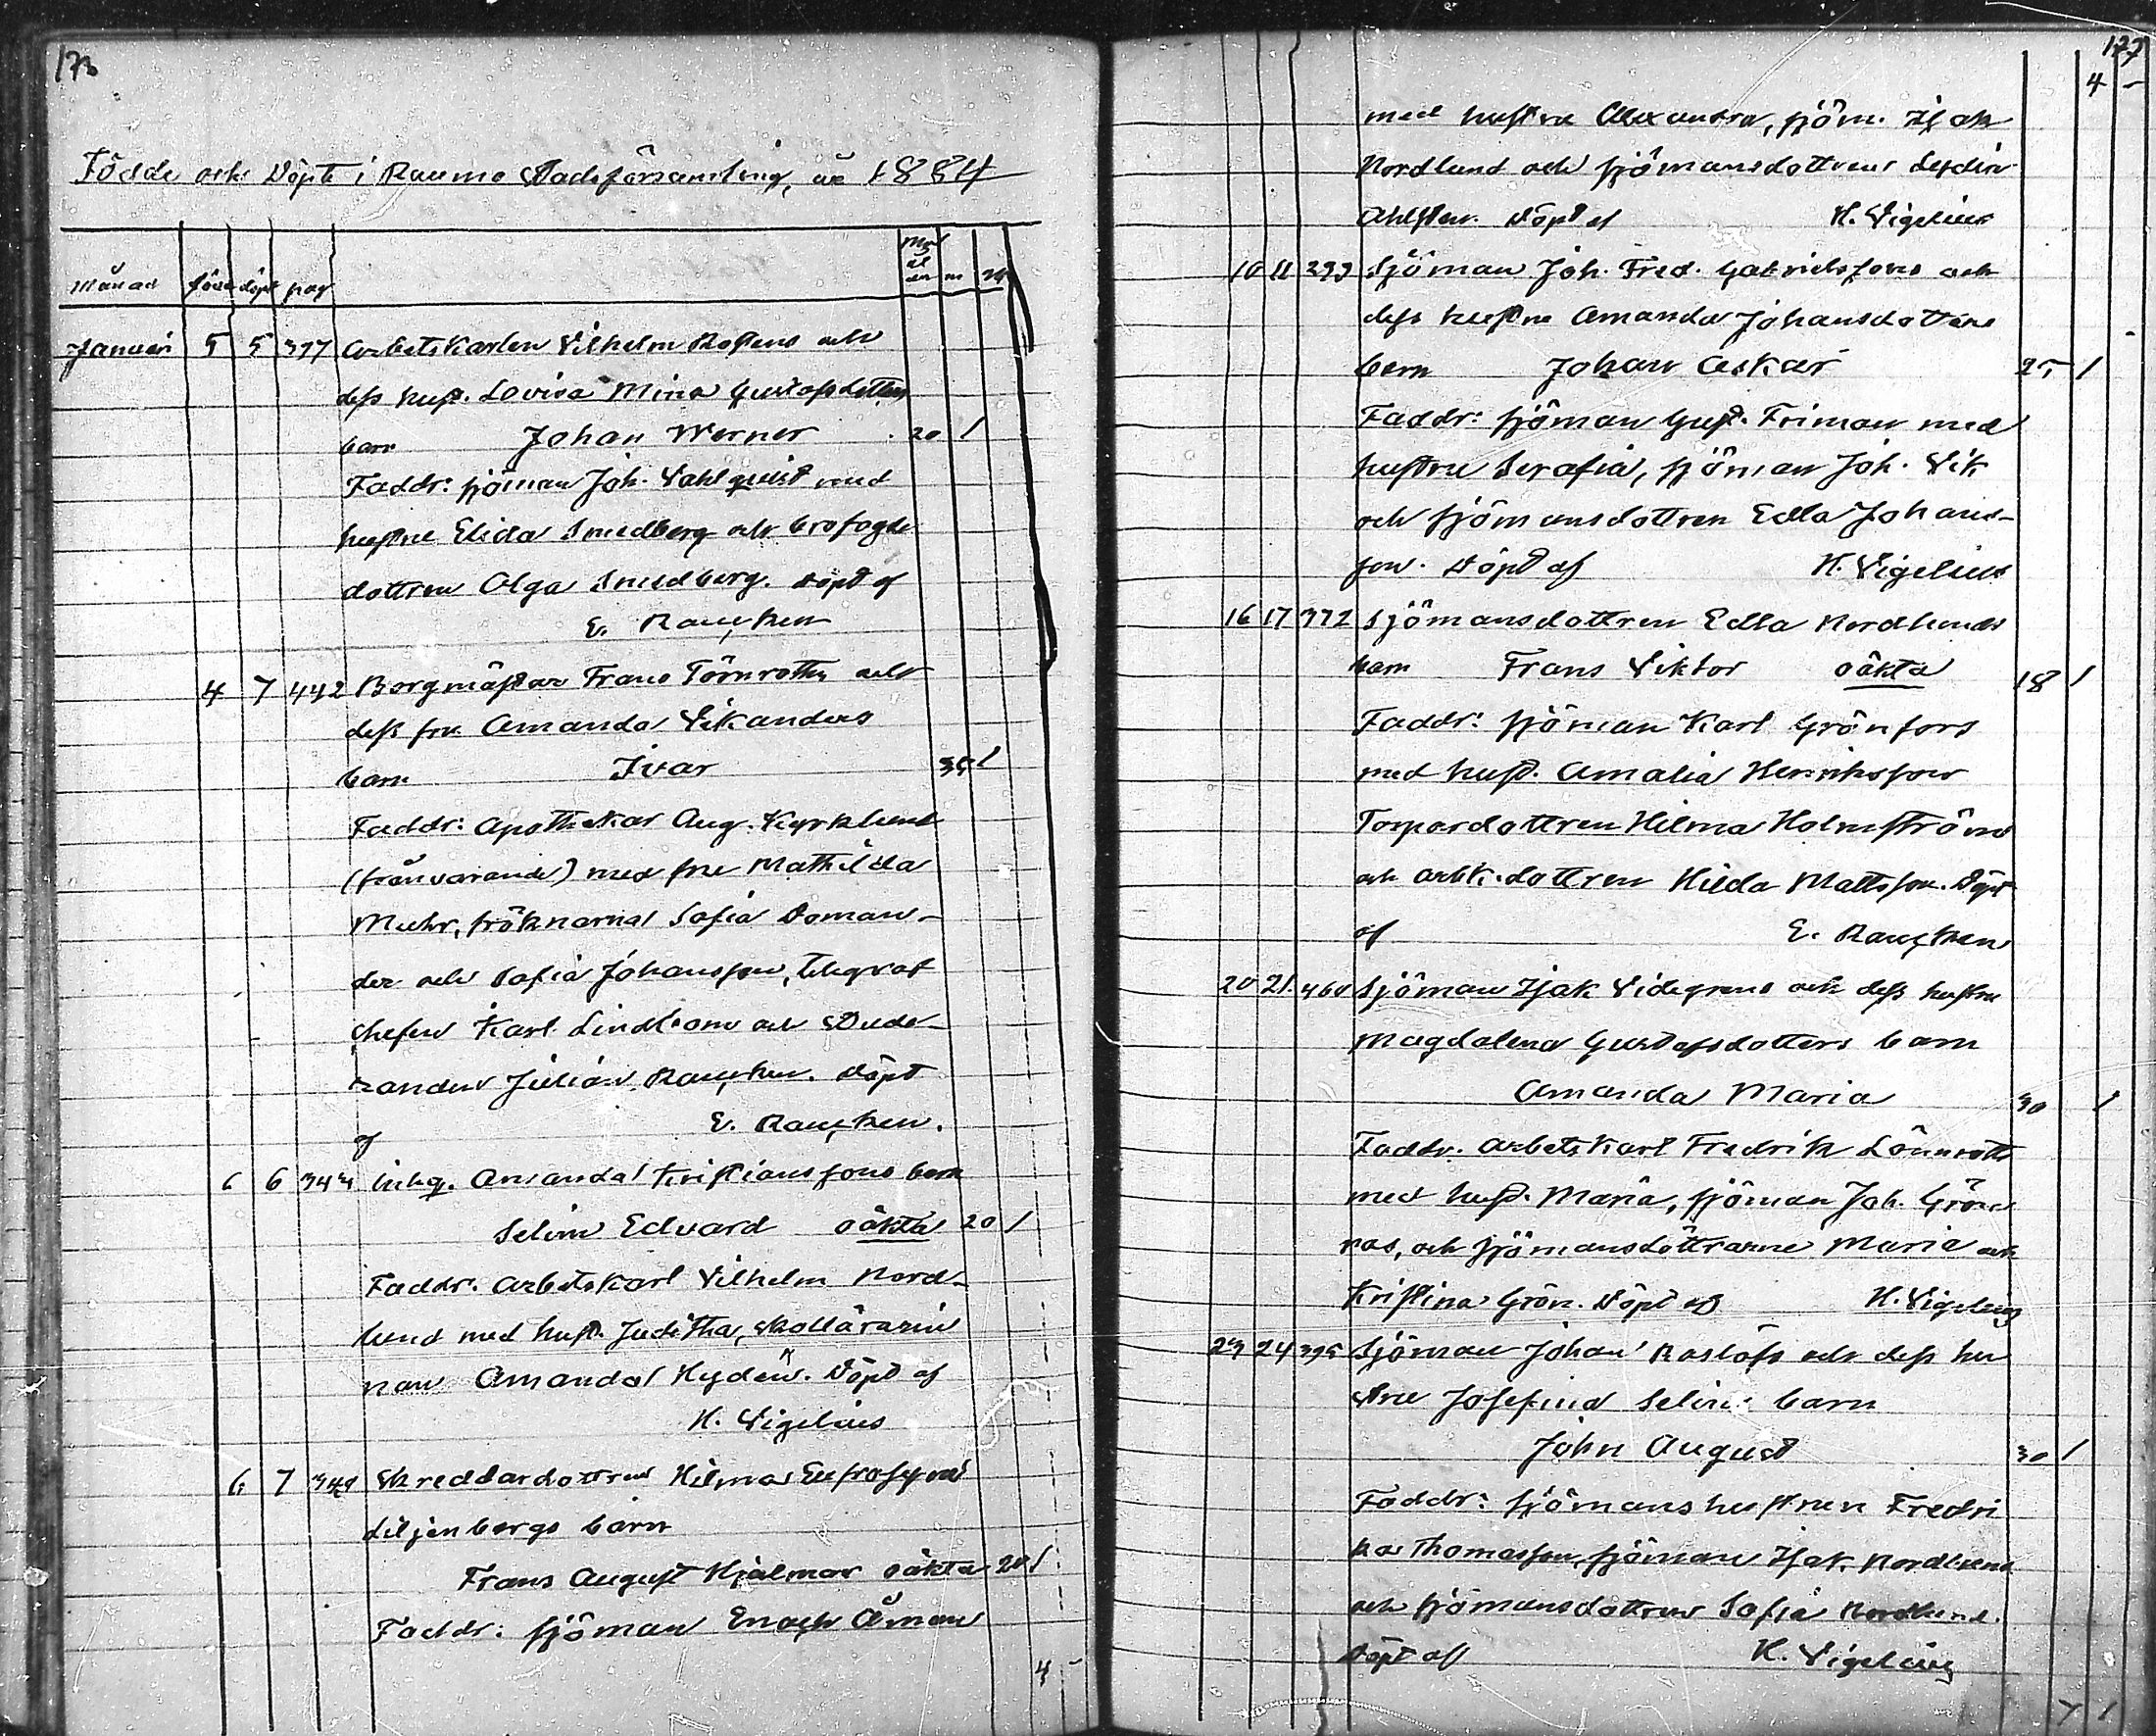 173
Födde och Döpte i Raumo Stadsförsamling, år 1884
Månad födde döpt pag m
Januari 5 5 377 Arbetskarlen Vilhelm Rostens och
dess hust. Lovisa Mina Gustafsdotters
barn Johan Werner 20 1
Faddr: sjöman Joh. Vahlquist med
hustru Elida Smedberg och brofogde
dottren Olga Smedberg. Döpt af
E. Raucken
4 7 442 Borgmästar Frans Törnroths och
dess fru Amanda Vikanders
barn Ivar 35 1
Faddr: Apothekar Aug. Kyrklund
(frånvarande) med fru Mathilda
Muhr, fröknarna Sofia Doman-
der och Sofia Johansson, telegraf
chefen Karl Lindbom och Stude-
randen Julian Raucken. Döpt
af E. Raucken.
6 6 343 inhq. Amanda Kristianssons barn
Selim Edvard oäkta 20 1
Faddr. Arbetskarl Vilhelm Nord-
lund med hust. Juditha, skollärarin
nan Amanda Hydén. Döpt af
H. Vigelius
6 7 349 Skreddardottren Hilma Eufrosyna
Liljenbergs barn
Frans August Hjalmar oäkta 20 1
Faddr: sjöman Enoch Åman
4 -
177
4 -
med hustru Alexandra, sjöm. Isak
Nordlund och sjömansdottren
Ahlsten. Döpt af H. Vigelius
10 11 299 Sjöman Joh. Fred. Gabrielssons och
dess hustru Amanda Johansdotters
barn Johan Oskar 25 1
Faddr: sjöman Gust. Friman med
hustru Serafia, sjöman Joh. Vik
och sjömansdottren Edla Johans-
son. Döpt af H. Vigelius
16 17 372 Sjömansdottren Edla Nordlunds
barn Frans Viktor oäkta 18 1
Faddr: sjöman Karl Grönfors
med hust. Amalia Henriksson
Torpardottren Hilma Holmström
och arbk. dottren Hilda Mattsson. Döpt
af E. Raucken
20 21. 460 Sjöman Isak Videgrens och dess hustru
Magdalena Gustafsdotters barn
Amanda Maria 30 1
Faddr. Arbetskarl Fredrik Lönnroth
med hust. Maria, sjöman Joh. Grön
roos, och sjömansdöttrarne Maria och
Kristina Grön. Döpt af H. Vigelius
23 24 395 Sjöman Johan Roslöfs och dess hu
stru Josefina Selins barn
John August 30 1
Faddr: sjömanshustrun Fredri
ka Thomasson, sjöman Isak Nordlund
och sjömansdottren Sofia Nordlund.
Döpt af H. Vigelius
7 1